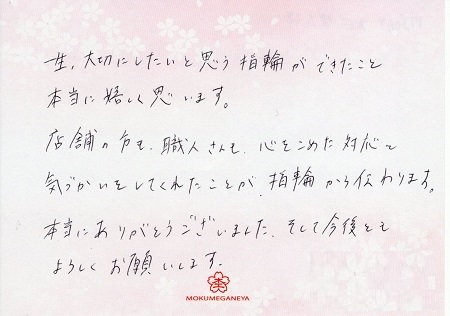 一生、大切にしたいと思う指輪ができたこと
本当に嬉しく思います。
店舗の方も、職人さんも、心をこめた対応と
気づかいをしてくれたことが、指輪から伝わります。
本当にありがとうございました。そして今後とも
よろしくお願いします。
MOKUMEGANEYA